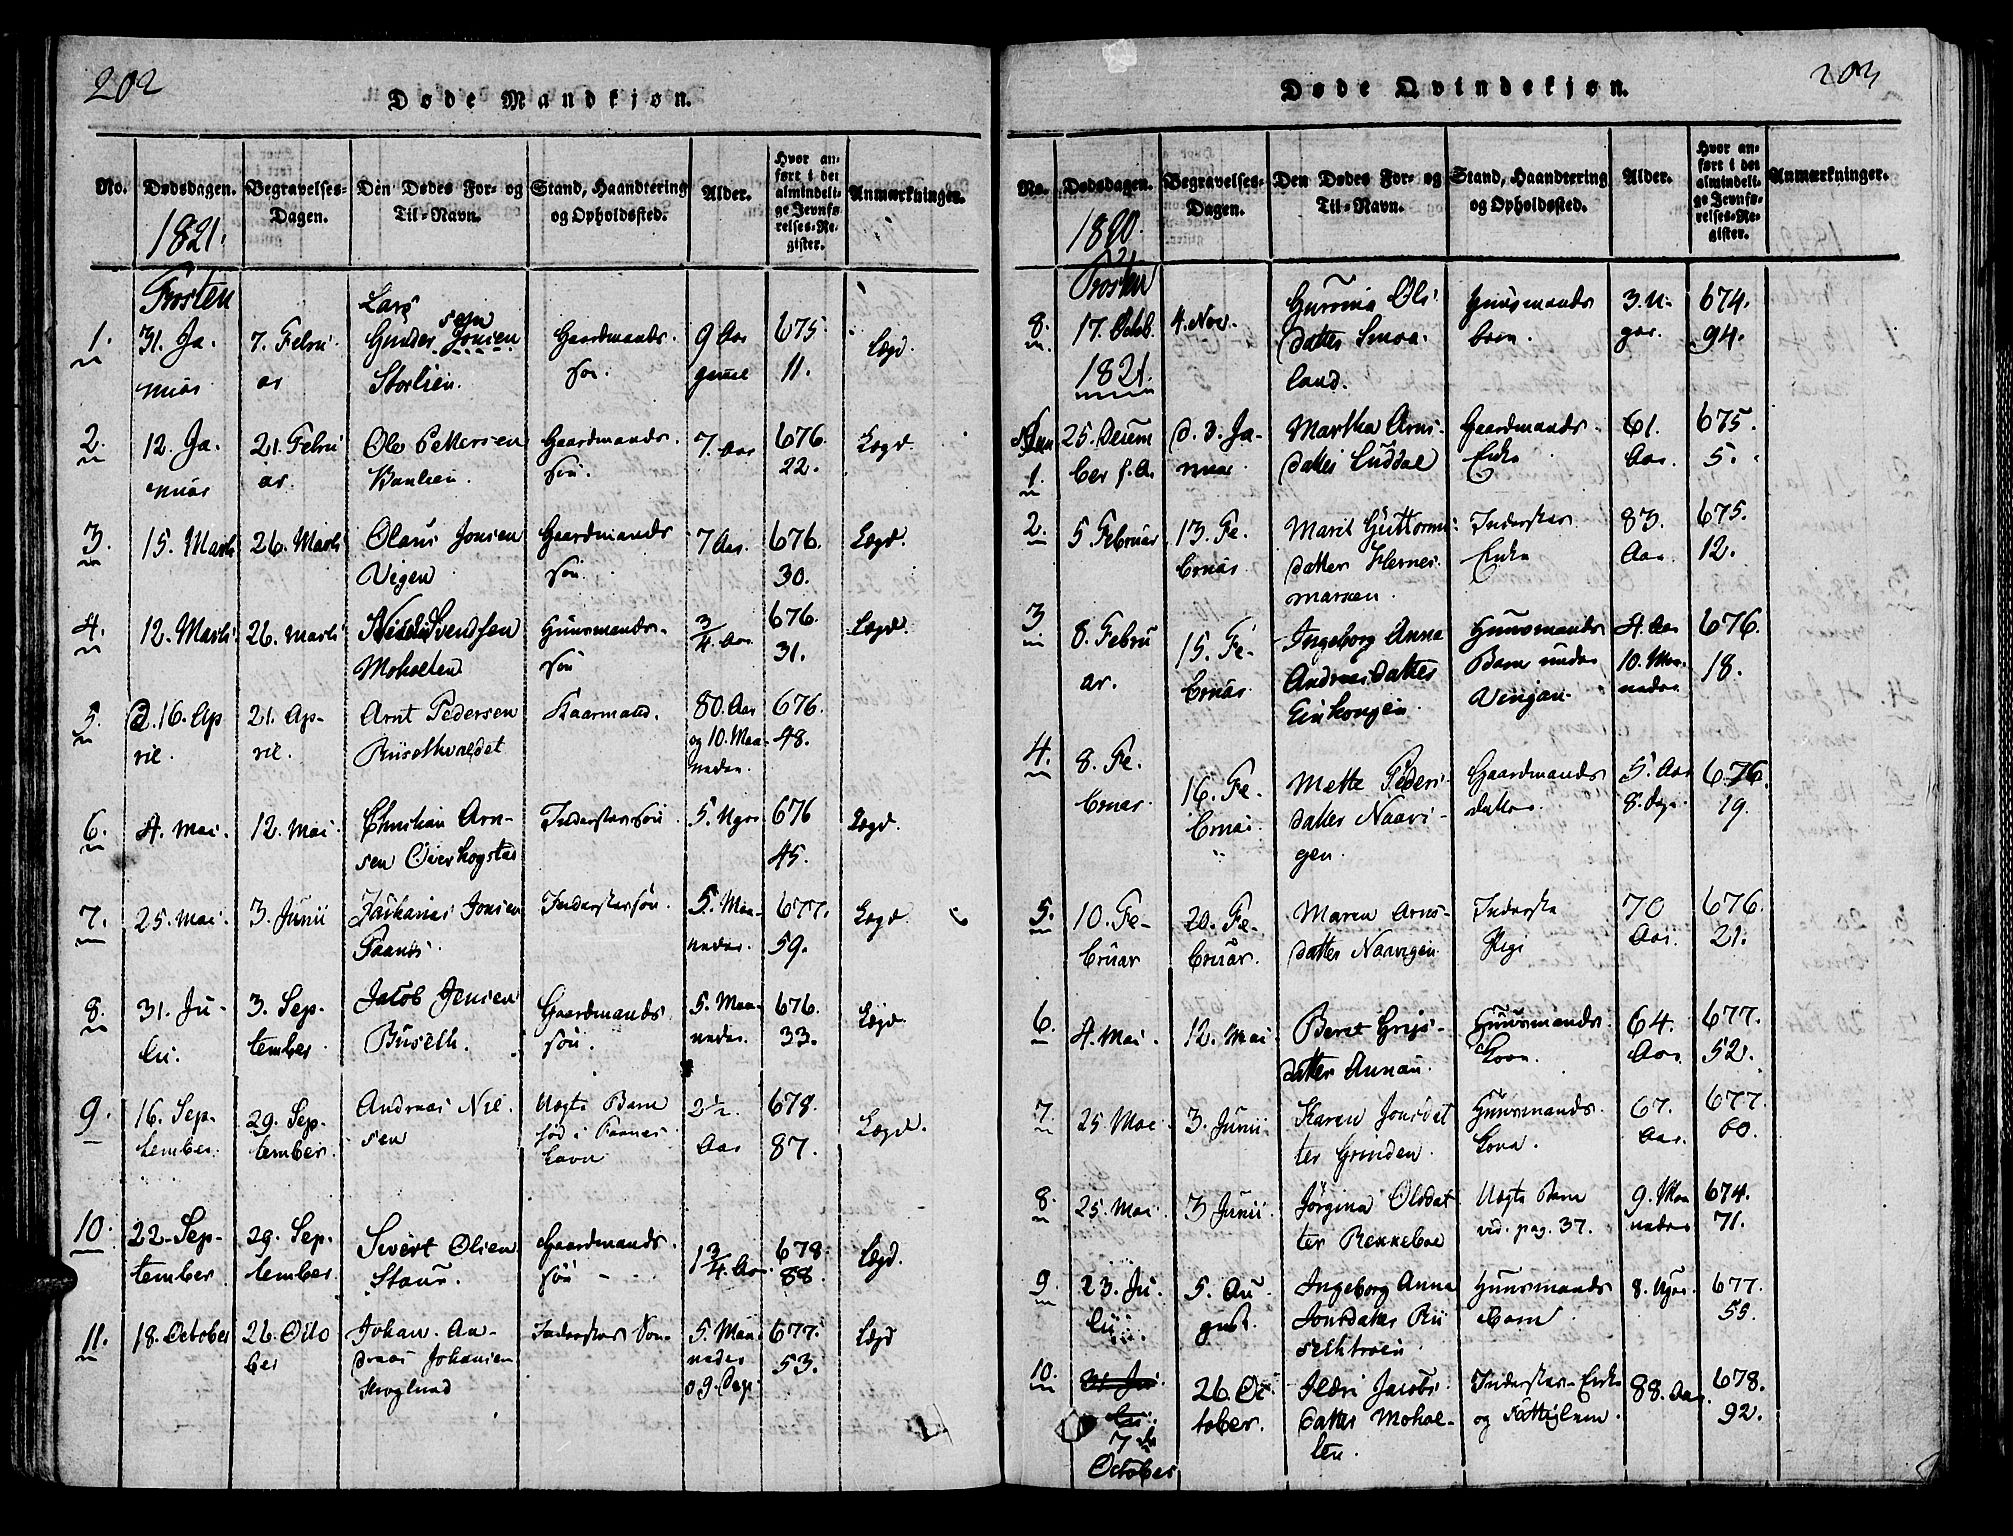 202
Døde Mandkjøn.
No.
Dødsdagen.
1821.
Begravelses-
Dagen.
Den Dødes For- og
Til-Navn.
Stand, Haandtering
og Opholdssted.
Alder.
Hvor an-
ført i det
almindeli-
ge Jevnfø-
relses-Re-
gister.
Anmærkninger.
Frosten
1.
31. Ja-
nuar
7. Febru-
ar
Lars
Gunder sen Jonsen
Storlien.
Gaardmands-
søn.
9 Aar
gamel
675
11.
Lægd.
2.
12. Ja-
nuar
21. Febru
ar.
Ole Pettersen
Gaardmands-
søn.
7. Aar
676.
22.
Lægd.
3.
15. Marts
26. Marts
Olaus Jonsen
Vigen
Gaardmands
søn.
7 Aar.
676.
30.
Lægd.
4.
12. Marts
26. Marts
Svendsen
Moholten
Huusmands-
søn
3/4 Aar
676.
31.
Lægd.
5.
d. 16. Ap
ril.
21. Ap-
ril.
Arnt Pedersen
Kaarmand.
80. Aar
og 10. Maa-
neder.
676.
48.
6.
4. Mai.
12. Mai
Christian Arn-
sen Overhogstad
Inderstessøn
5. Uger
676
45.
Lægd.
7.
25. Mai
3. Junii
Zacharias Jonsen
Faanes.
Inderstessøn.
5. Maa-
neder.
677.
59.
Lægd.
8.
31. Ju-
li.
3. Sep-
tember
Jacob Jensen
Buseth.
Gaardmands
søn.
5. Maa-
neder.
676.
33.
Lægd.
9.
16. Sep-
tember.
29. Sep-
tember.
Andreas Niel-
sen
Uægte Barn
fød i Faanes
2 1/2.
Aar
678.
87.
Lægd.
10.
22. Sep-
tember.
29. Sep-
tember.
Sivert Olsen
Staur.
Gaardmands-
søn
1 3/4. Aar.
678.
88.
Lægd.
11.
18. October
26. Octo
ber
Johan An-
dreas Johansen
Skoglund
Inderstes Søn
5. Maa-
neder
o 9. Dage
677.
53.
Lægd
203
Døde Qvindekjøn.
No.
Dødsdagen.
1820.
Begravelses-
Dagen.
Den Dødes For- og
Til-Navn.
Stand, Haandtering
og Opholdssted.
Alder.
Hvor an-
ført i det
almindeli-
ge Jevnfø-
relses-Re-
gister.
Anmærkninger.
Frosten
8.
17. Octob.
4. Nov.
Gurina Ols
datter Smaa-
land.
Huusmands
barn.
3. U-
ger.
674.
94.
1821.
1.
25. Decem
ber f. A.
d. 3. Ja-
nuar.
Martha Arns-
datter Luddal
Gaardmands-
Enke
61.
Aar.
675.
5.
2.
5. Februar
13. Fe-
bruar.
Marit Guttorms-
datter
Inderstes
Enke
83.
Aar
675.
12.
3
8. Febru
ar.
15. Fe-
bruar.
Ingeborg Anna
Andreasdatter
Huusmands
Barn under
Vingan
4. Aar
10. Maa-
neder.
676.
18.
4.
8. Fe-
bruar.
16. Fe-
bruar.
Mette Peders-
datter Naavi-
gen.
Gaardmands
datter.
5. Aar
8. Dage.
676.
19.
5.
10. Fe-
bruar
20. Fe-
bruar.
Maren Arns-
datter Naavigen
Inderste
Pige
70
Aar.
676.
21.
6.
4. Mai.
12. Mai.
Beret Grigs-
datter Annau.
Huusmands-
Kone.
64.
Aar.
677.
52.
7.
25. Mai
3. Junii.
Karen Jonsdat
ter Grinden.
Huusmands-
Kone.
67.
Aar.
677.
60.
8.
25. Mai
3 Junii.
Jørgina Olsdat
ter Rekkeboe
Uægte Barn
vid. pag. 37.
9. Maa
neder
674.
71.
9.
23. Ju-
lii.
5. Au-
gust.
Ingeborg Anna
Jonsdatter Rii
sethtroen.
Huusmands
Barn
8. Uger.
677.
55.
10.
31. Ju-
lii.
7de
October
26. Oc-
tober.
Ildri Jacobs-
datter Mohol-
ten.
Inderstes-Enke
og Fattiglem.
88. Aar.
678.
92.